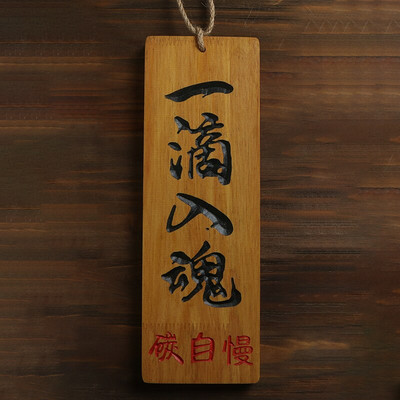 一滴入魂
碳自慢